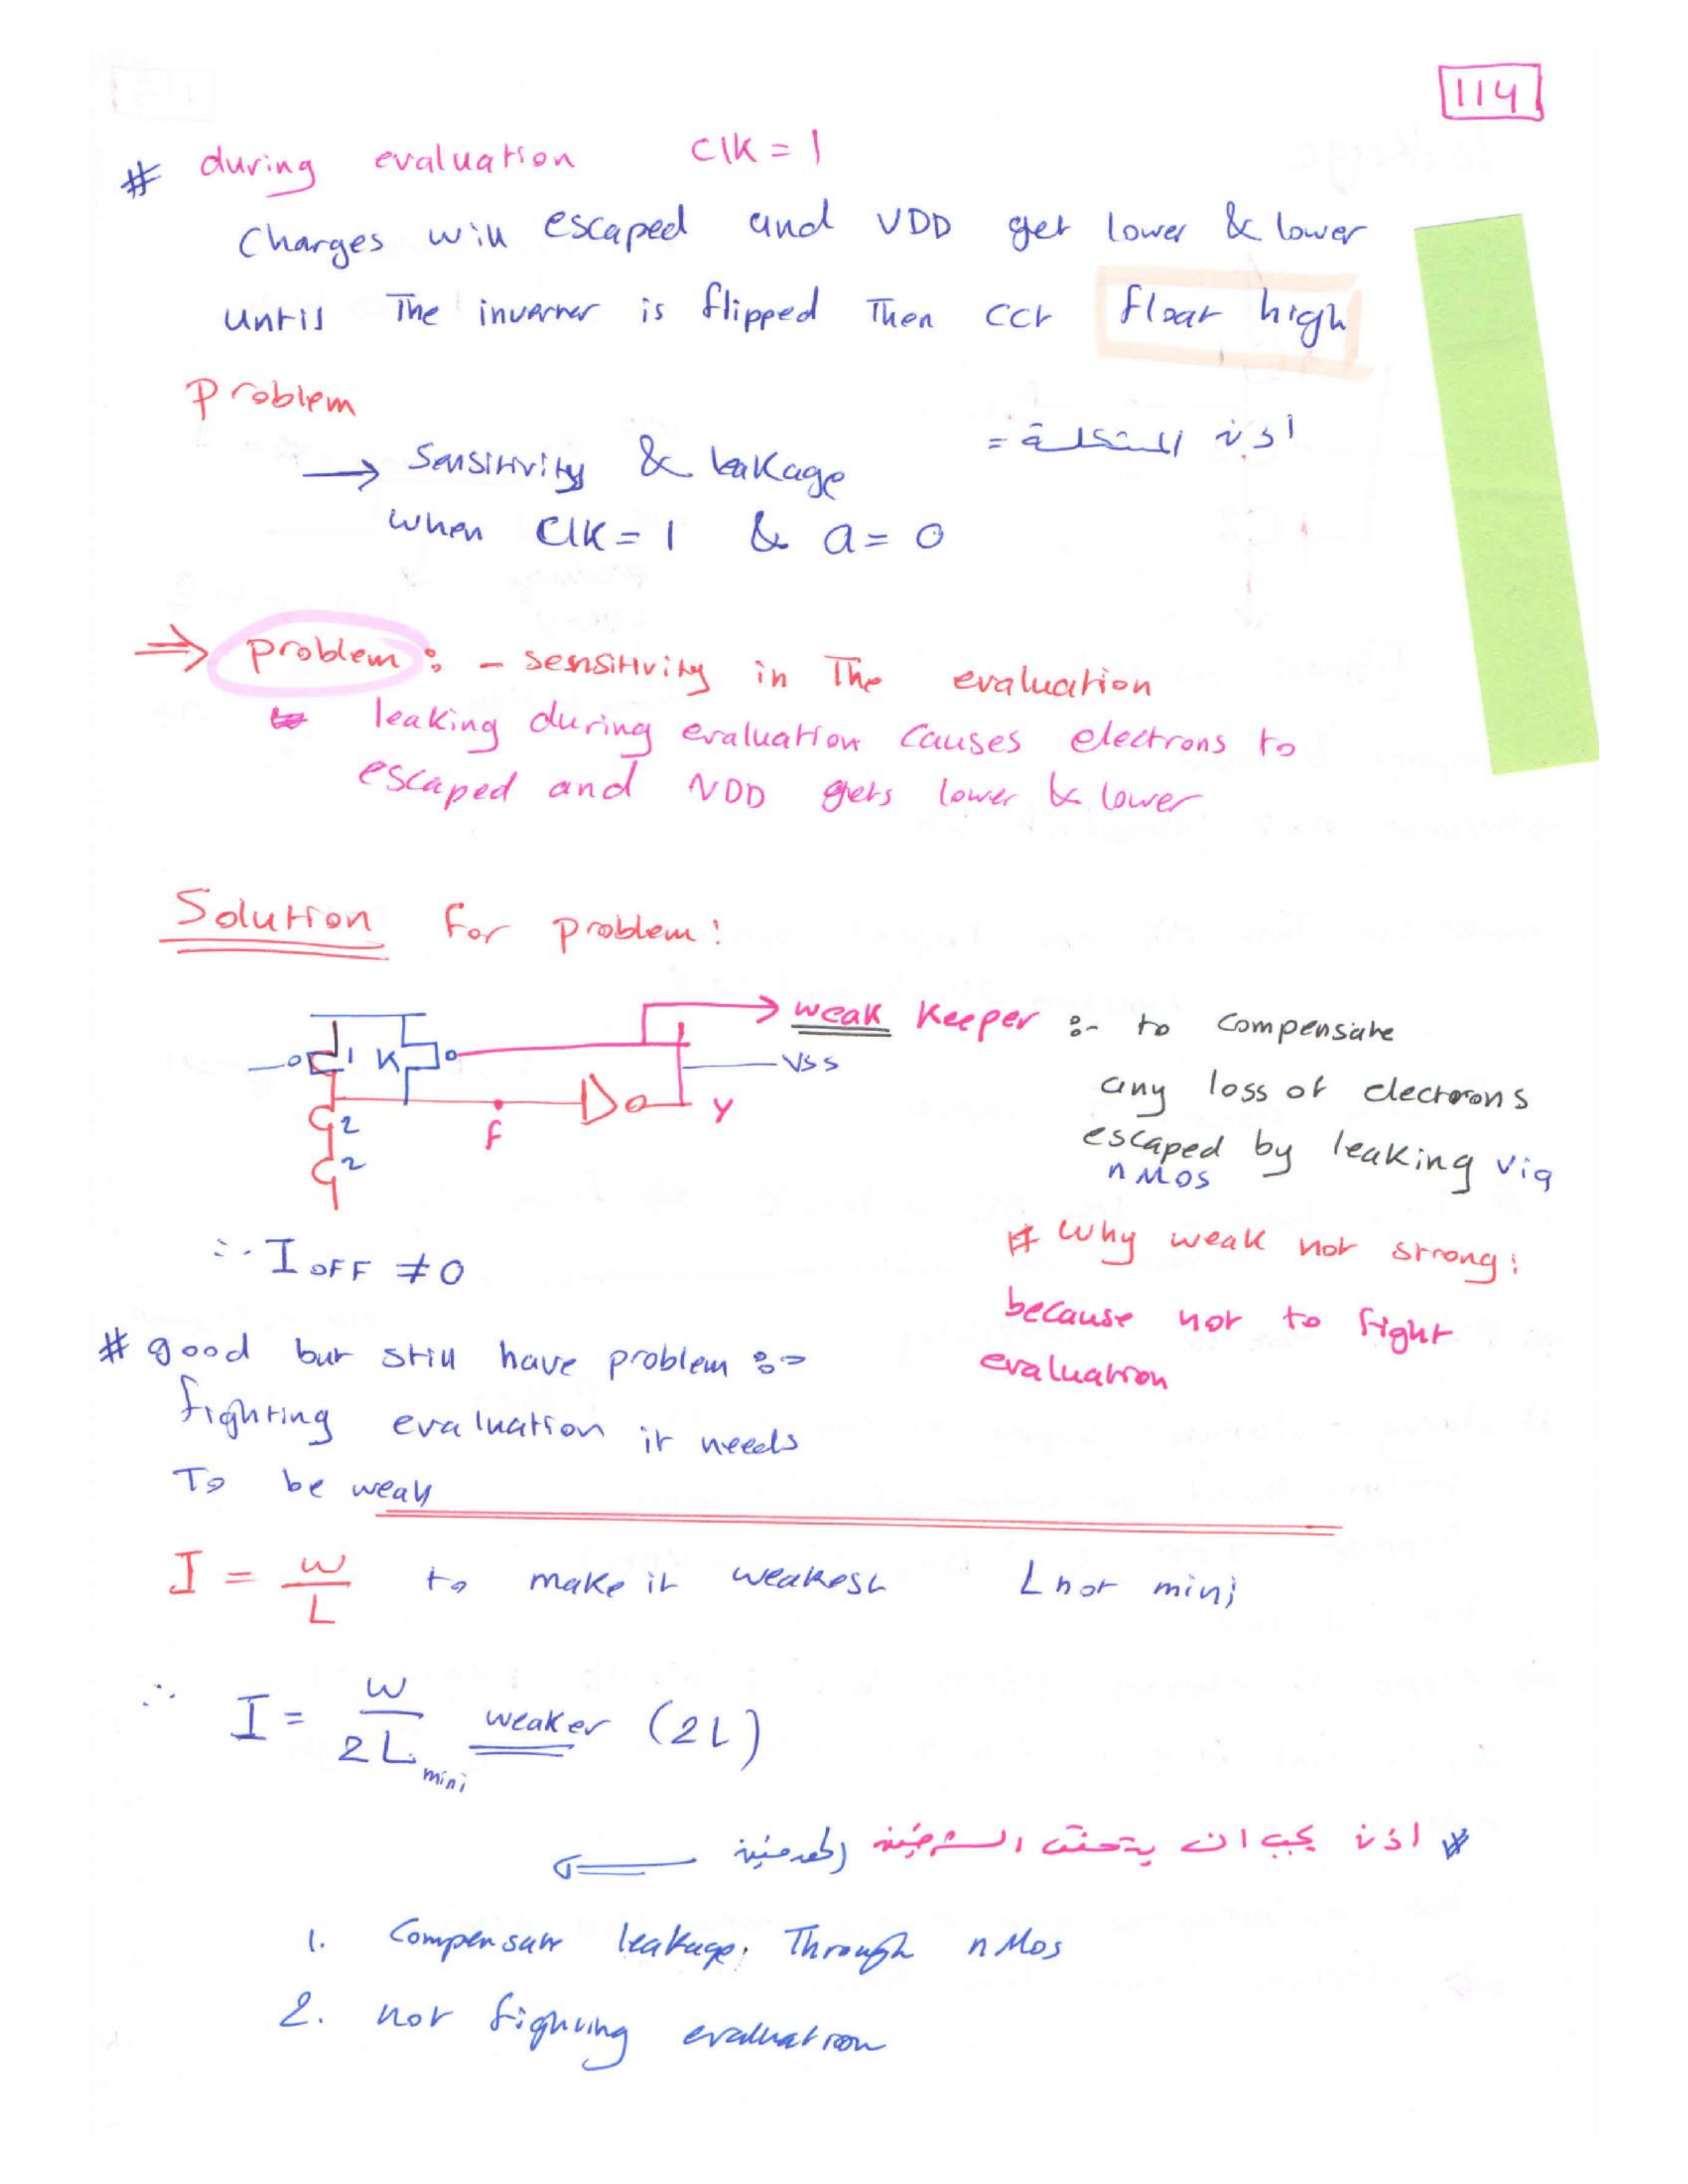 114
# during evaluation clk = 1
Charges will escaped and VDD get lower & lower
until The inverner is flipped Then cct float high
Problem
اذن المشكلة =
→ Sensitivity & leakage
when Clk = 1 & a = 0
⇒ Problem : - sensitivity in The evaluation
leaking during evaluation causes electrons to
escaped and VDD gets lower & lower
Solution for problem:
weak Keeper :- to compensate
any loss of electroons
escaped by leaking via
nMos
1 K
VSS
2
f
Y
2
∵ I OFF ≠ 0
# Why weak not strong:
because not to fight
evaluation
# good but still have problem :-
fighting evaluation it needs
To be weak
I = W/L to make it weakest L not mini
∴ I = W/2L mini weaker (2L)
# اذن يجب ان يتحقق
1. Compensate leakage. Through nMos
2. not fighting evaluation